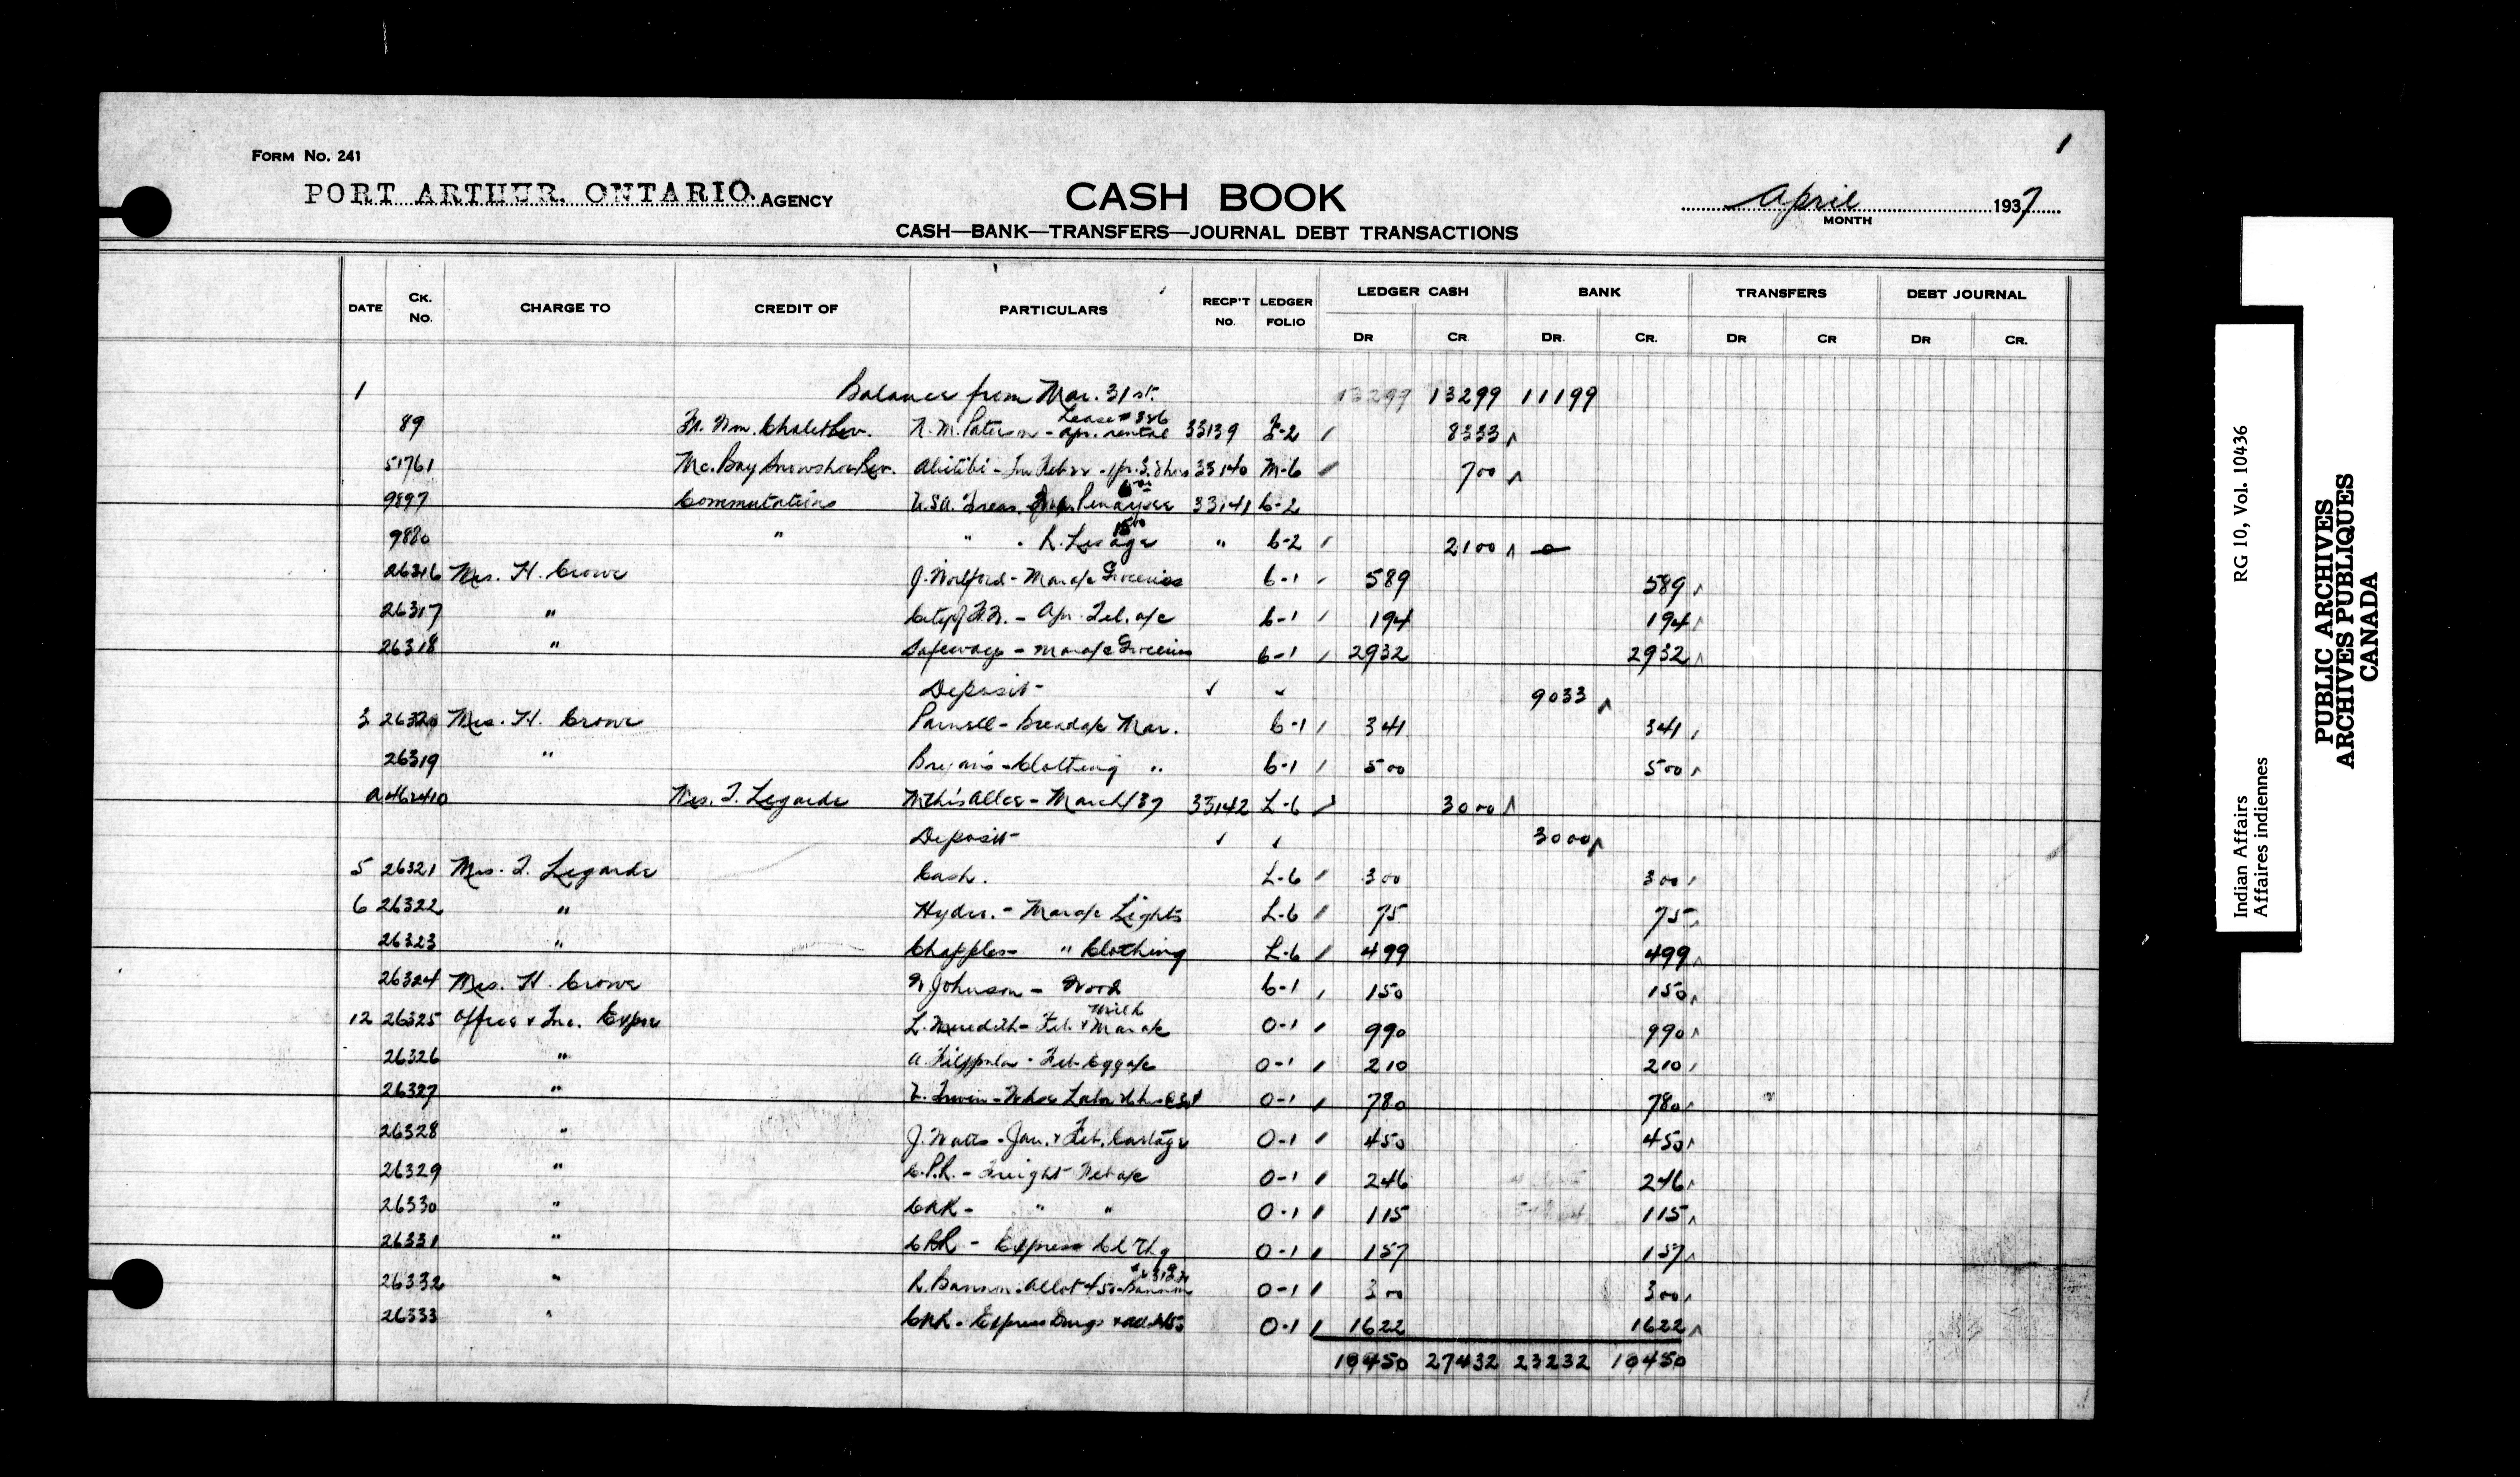 1
FORM NO. 241
PORT ARTHUR, ONTARIO. AGENCY
CASH BOOK
April 1937
MONTH
CASH—BANK—TRANSFERS—JOURNAL DEBT TRANSACTIONS
DATE CK. NO. CHARGE TO CREDIT OF PARTICULARS RECP'T NO. LEDGER FOLIO LEDGER CASH BANK TRANSFERS DEBT JOURNAL
DR CR DR. CR. DR CR DR CR.
1 Balance from Mar. 31st. 13299 13299 11199
89 Ft. Wm. Chalet Rev. N. M. Paterson - Lease #386 Apr. rental 33139 F-2 8333
51761 Mc. Bay Snowshoe Rev. Abitibi - Inv Feb 22 - 1 pr. S. Shoes 33140 M-6 700
9897 Commutations U.S.A. Treas. 6 00 33141 C-2
9880 " " - R. Lesage 15 00 " C-2 2100
26316 Mrs. H. Crowe J. Wolford - Mar a/c Groceries C-1 589 589
26317 " City of F.W. - Apr. Tel. a/c C-1 194 194
26318 " Safeway - Mar a/c Groceries C-1 2932 2932
Deposit - 9033
3 26320 Mrs. H. Crowe Parnell - Bread a/c Mar. C-1 341 341
26319 " Bryan's - Clothing " C-1 500 500
A462410 Mrs. T. Legarde Mthrs Allce - March/37 33142 L-6 3000
Deposit 3000
5 26321 Mrs. T. Legarde Cash. L-6 300 300
6 26322 " Hydro. - Mar a/c Lights L-6 75 75
26323 " Chapples - " Clothing L-6 499 499
26324 Mrs. H. Crowe W Johnson - Wood C-1 150 150
12 26325 Office & Inc. Expse L. Meredith - Feb. & Mar a/c Milk O-1 990 990
26326 " A. Filppula - Feb Egg a/c O-1 210 210
26327 " Irwin - O-1 780 780
26328 " J. Watts - Jan. & Feb. Cartage O-1 450 450
26329 " C.P.R. - Freight Feb a/c O-1 246 246
26330 " CNR - " " O-1 115 115
26331 " CPR - Express Clthg O-1 157 157
26332 " R. Banson - Allot 450 - O-1 300 300
26333 " CNR - Express Drugs & O-1 1622 1622
10450 27432 23232 10450
Indian Affairs RG 10, Vol. 10436
Affaires indiennes
PUBLIC ARCHIVES
ARCHIVES PUBLIQUES
CANADA